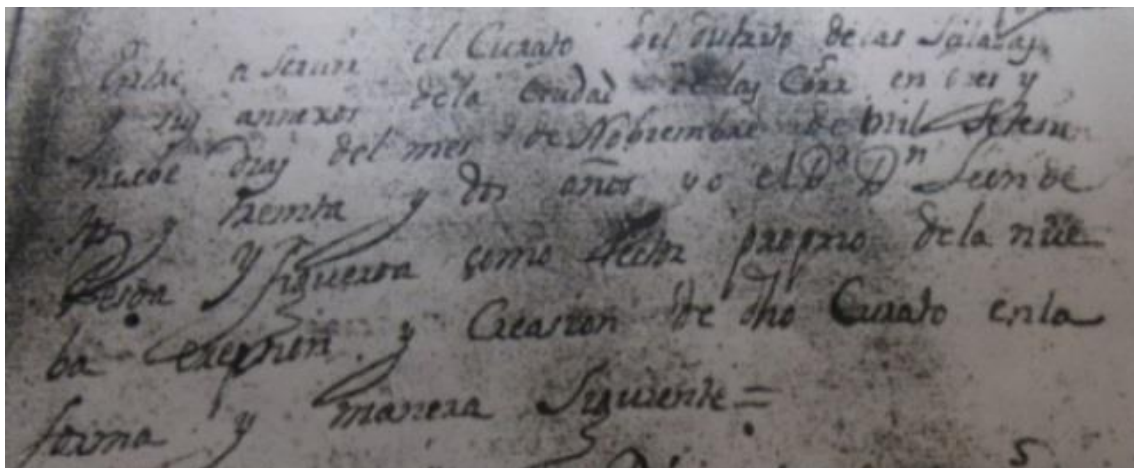 a Servir el Curato del de las Salinas
y sus annexos dela Ciudad de las Corr.s en diez y
nuebe dias del mes de Nobiembre de mil Setesien
tos y treinta y dos años yo el D.r D.n Leon de
Pesoa y figueroa como Rector proprio dela nue
ba erepsion y Creasion de dho Curato enla
forma y manera Siguiente =